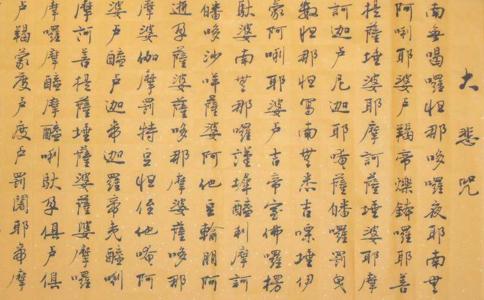 大悲咒
南無喝囉怛那哆囉夜耶南無
阿唎耶婆卢羯帝爍鉢囉耶菩
提薩埵婆耶摩訶薩埵婆耶摩
訶迦卢尼迦耶唵薩皤囉罰曳
數怛那怛寫南無悉吉嘌埵伊
蒙阿唎耶婆卢吉帝室佛囉楞
馱婆南無那囉謹墀醯唎摩訶
皤哆沙咩薩婆阿他豆輸朋阿
逝孕薩婆薩哆那摩婆薩哆那
摩婆伽摩罰特豆怛侄他唵阿
婆卢醯卢迦帝迦羅帝夷醯唎
摩訶菩提薩埵薩婆薩婆摩囉
摩囉摩醯摩醯唎馱孕俱卢俱
卢羯蒙度卢度卢罰闍耶帝摩